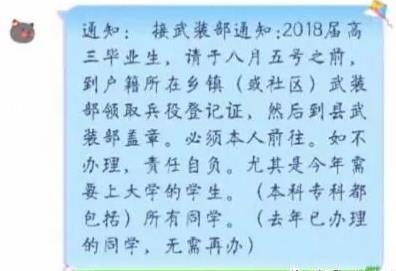 通知： 接武装部通知:2018届高
三毕业生，请于八月五号之前，
到户籍所在乡镇（或社区）武装
部领取兵役登记证，然后到县武
装部盖章。必须本人前往。如不
办理，责任自负。尤其是今年需
要上大学的学生。（本科专科都
包括）所有同学。（去年已办理
的同学，无需再办）